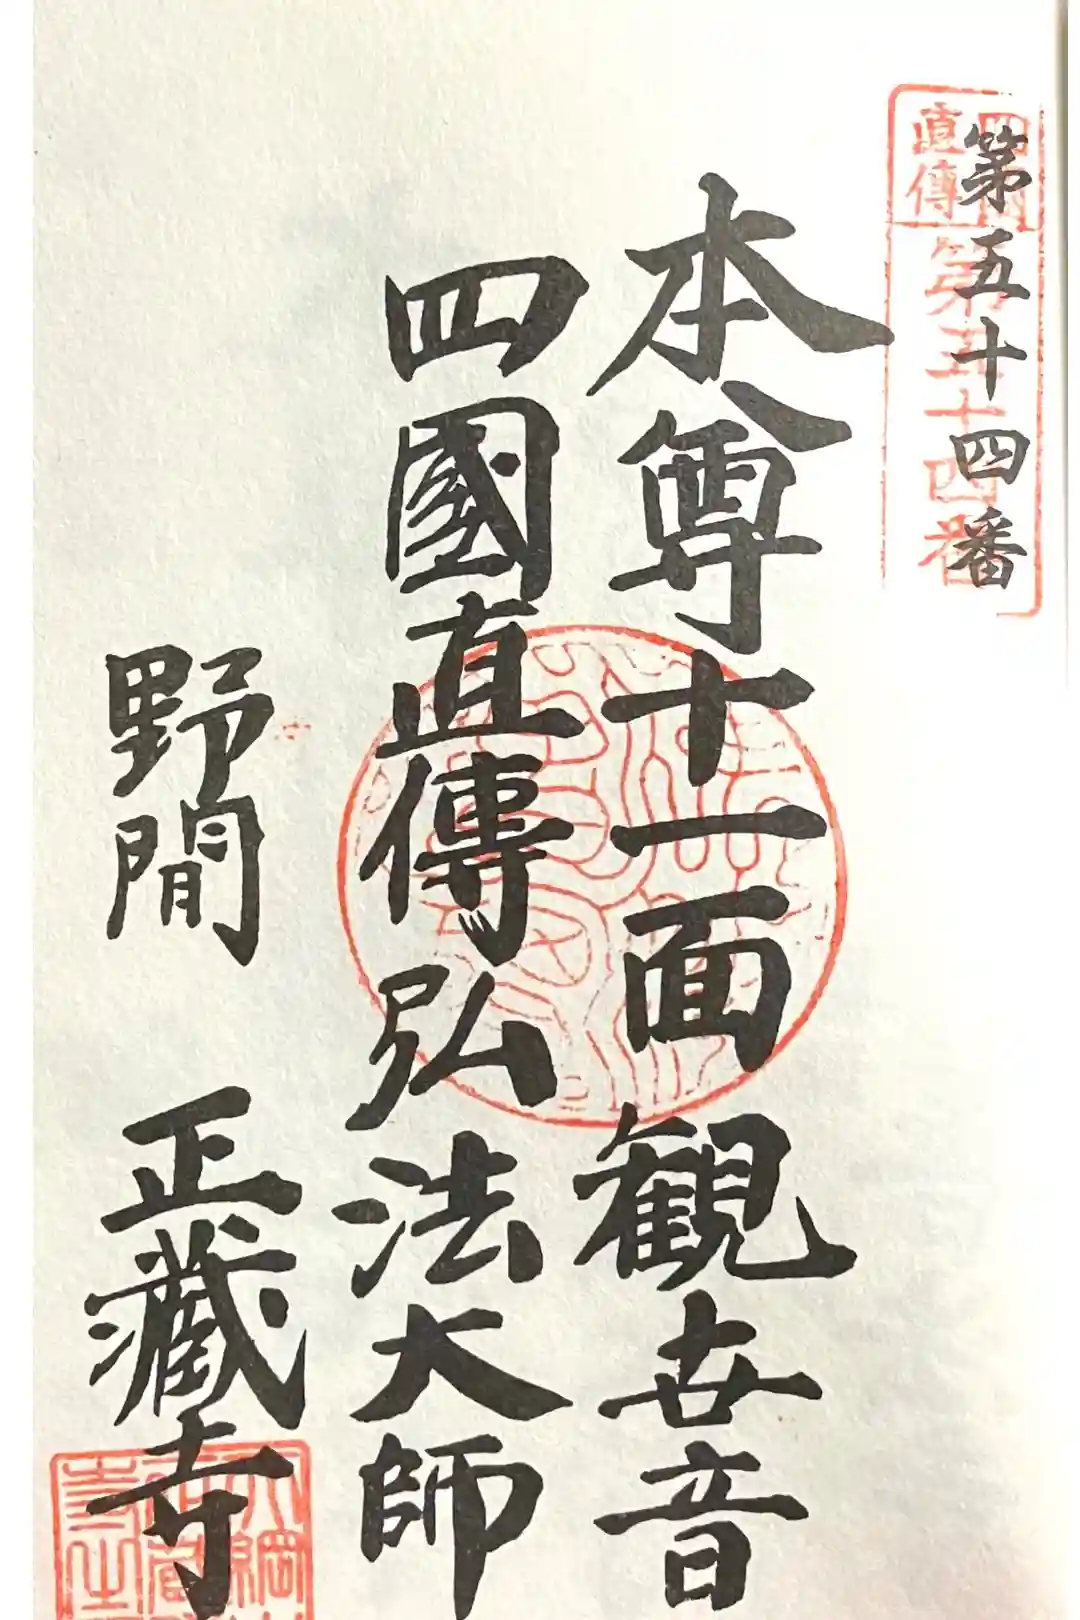 第五十四番
四國
直傳
第五十四番
本尊十一面観世音
四國直傳弘法大師
野間 正藏寺